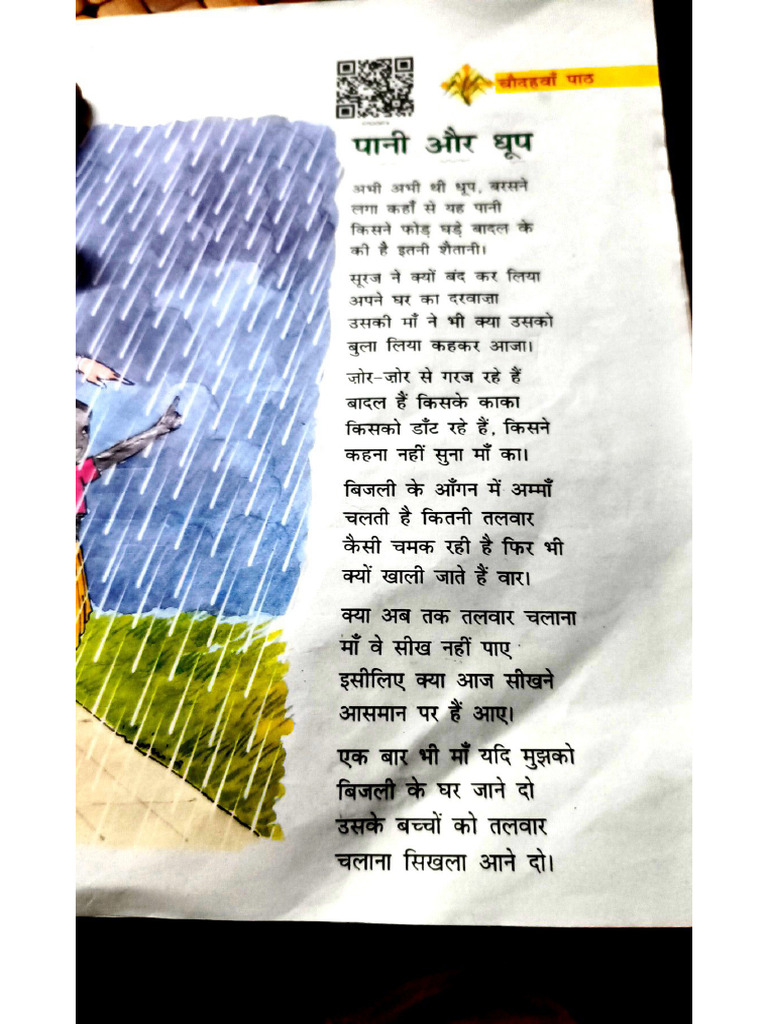 चौदहवाँ पाठ
पानी और धूप
अभी अभी थी धूप, बरसने
लगा कहाँ से यह पानी
किसने फोड़ घड़े बादल के
की है इतनी शैतानी।
सूरज ने क्यों बंद कर लिया
अपने घर का दरवाज़ा
उसकी माँ ने भी क्या उसको
बुला लिया कहकर आजा।
ज़ोर-ज़ोर से गरज रहे हैं
बादल हैं किसके काका
किसको डाँट रहे हैं, किसने
कहना नहीं सुना माँ का।
बिजली के आँगन में अम्माँ
चलती है कितनी तलवार
कैसी चमक रही है फिर भी
क्यों खाली जाते हैं वार।
क्या अब तक तलवार चलाना
माँ वे सीख नहीं पाए
इसीलिए क्या आज सीखने
आसमान पर हैं आए।
एक बार भी माँ यदि मुझको
बिजली के घर जाने दो
उसके बच्चों को तलवार
चलाना सिखला आने दो।